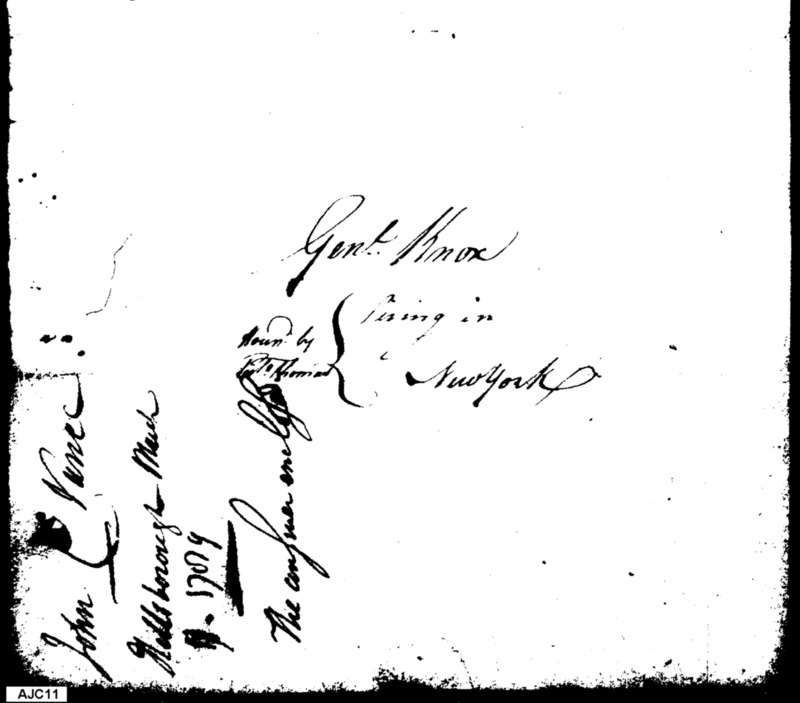 Genl. Knox
living in
New York
by
Thomas
John Vance
Hillsborough March
1789
The answer enclosed
AJC11